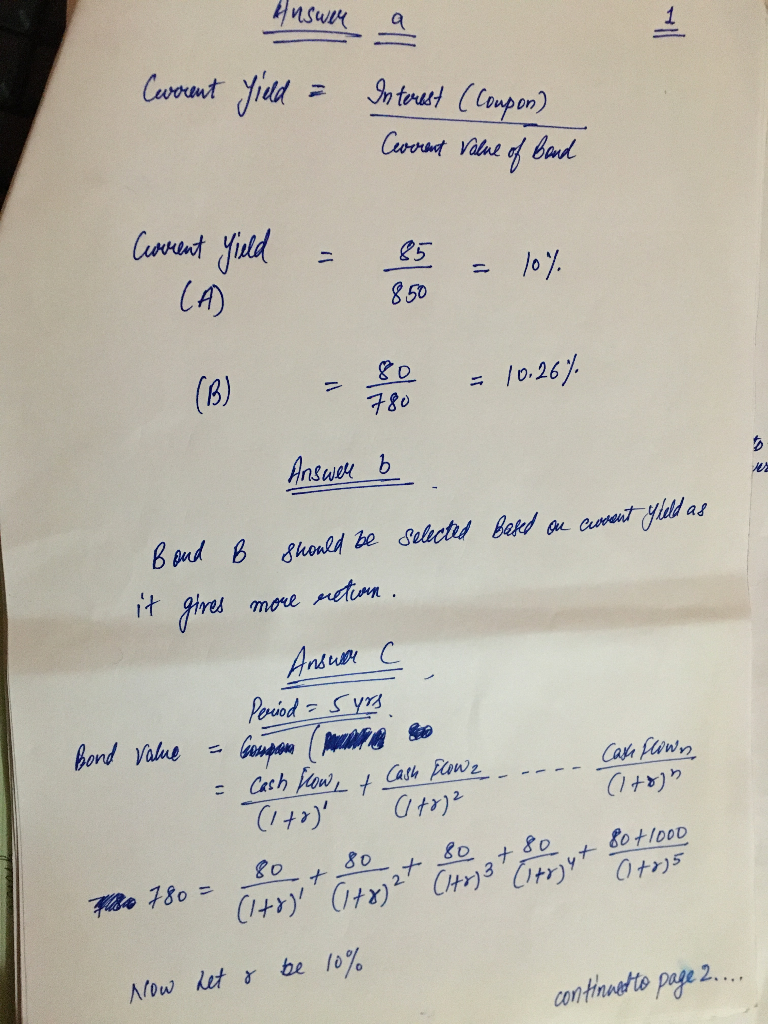 Answer a 1
Current Yield = Interest (Coupon)
Current Value of Bond
Current Yield = 85 = 10%
(A) 850
(B) = 80 = 10.26%
780
Answer b
Bond B should be selected Based on current yield as
it gives more return.
Answer C
Period = 5 yrs
Bond Value = (
= Cash Flow1 + Cash Flow2 - - - - - - Cash Flow n
(1+r)^1 (1+r)^2 (1+r)^n
780 = 80 + 80 + 80 + 80 + 80+1000
(1+r)^1 (1+r)^2 (1+r)^3 (1+r)^4 (1+r)^5
Now Let r be 10%
continued to page 2....